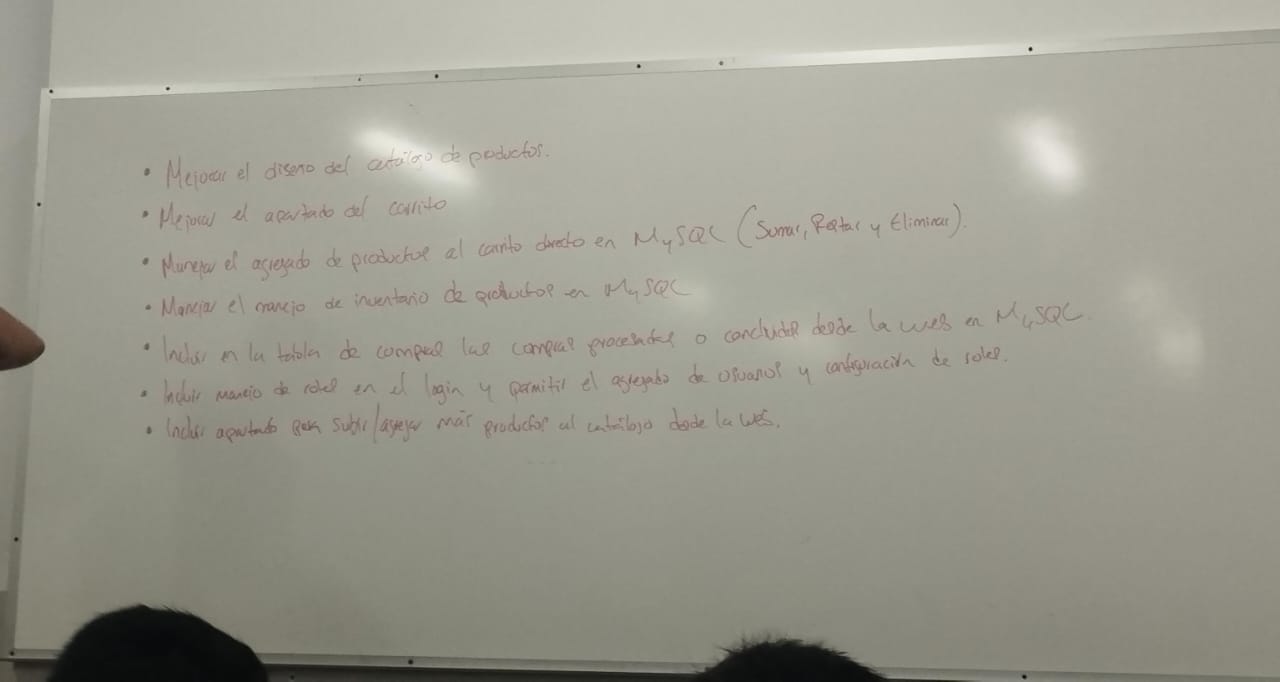 • Mejorar el diseño del catálogo de productos.
• Mejorar el apartado del carrito
• Manejar el agregado de productos al carrito directo en MySQL (Sumar, Restar y Eliminar).
• Manejar el manejo de inventario de productos en MySQL
• Incluir en la tabla de compras las compras procesadas o concluidas desde la web en MySQL.
• Incluir manejo de roles en el login y permitir el agregado de usuarios y configuración de roles.
• Incluir apartado para subir/agregar más productos al catálogo desde la web.